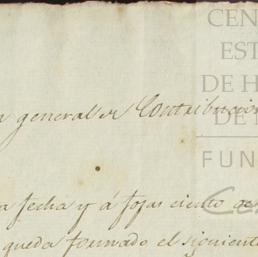 CEN
ES
DE H
DE
general de Contribucion
FUN
Ce
a fecha y á fojas ciento
queda formado el siguient